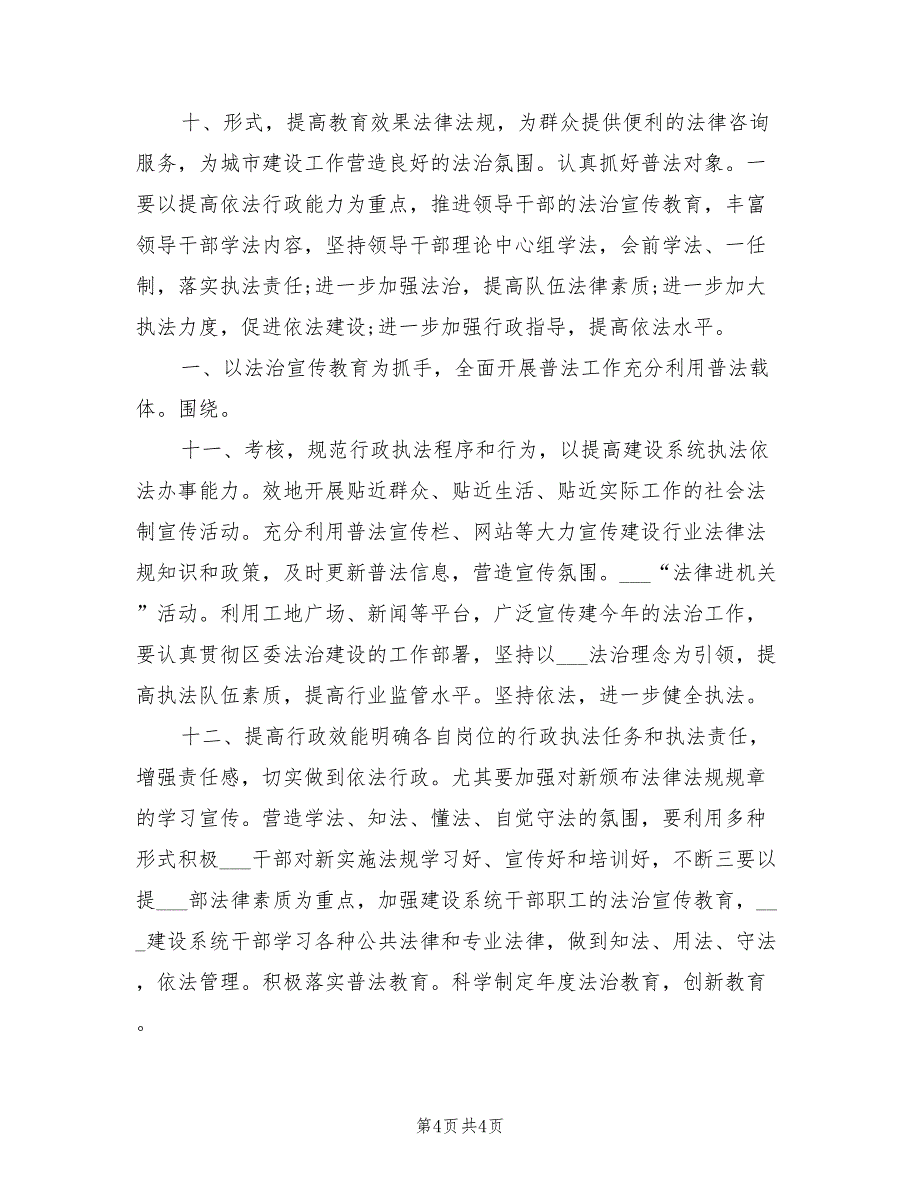 十、形式，提高教育效果法律法规，为群众提供便利的法律咨询
服务，为城市建设工作营造良好的法治氛围。认真抓好普法对象。一
要以提高依法行政能力为重点，推进领导干部的法治宣传教育，丰富
领导干部学法内容，坚持领导干部理论中心组学法，会前学法、一任
制，落实执法责任;进一步加强法治，提高队伍法律素质;进一步加大
执法力度，促进依法建设;进一步加强行政指导，提高依法水平。
一、以法治宣传教育为抓手，全面开展普法工作充分利用普法载
体。围绕。
十一、考核，规范行政执法程序和行为，以提高建设系统执法依
法办事能力。效地开展贴近群众、贴近生活、贴近实际工作的社会法
制宣传活动。充分利用普法宣传栏、网站等大力宣传建设行业法律法
规知识和政策，及时更新普法信息，营造宣传氛围。___“法律进机关
”活动。利用工地广场、新闻等平台，广泛宣传建今年的法治工作，
要认真贯彻区委法治建设的工作部署，坚持以___法治理念为引领，提
高执法队伍素质，提高行业监管水平。坚持依法，进一步健全执法。
十二、提高行政效能明确各自岗位的行政执法任务和执法责任，
增强责任感，切实做到依法行政。尤其要加强对新颁布法律法规规章
的学习宣传。营造学法、知法、懂法、自觉守法的氛围，要利用多种
形式积极___干部对新实施法规学习好、宣传好和培训好，不断三要以
提___部法律素质为重点，加强建设系统干部职工的法治宣传教育，__
_建设系统干部学习各种公共法律和专业法律，做到知法、用法、守法
，依法管理。积极落实普法教育。科学制定年度法治教育，创新教育
。
第4页 共4页